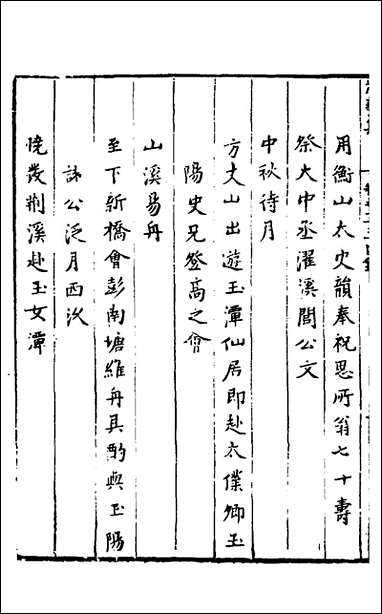 用衡山太史韻奉祝思所翁七十壽
祭大中丞濯溪閻公文
中秋待月
方丈山出遊玉潭仙居即赴太僕卿玉
陽史兄登高之會
山溪易舟
至下新橋會彭南塘維舟具酌與玉陽
諸公泛月四次
曉發荆溪赴玉女潭